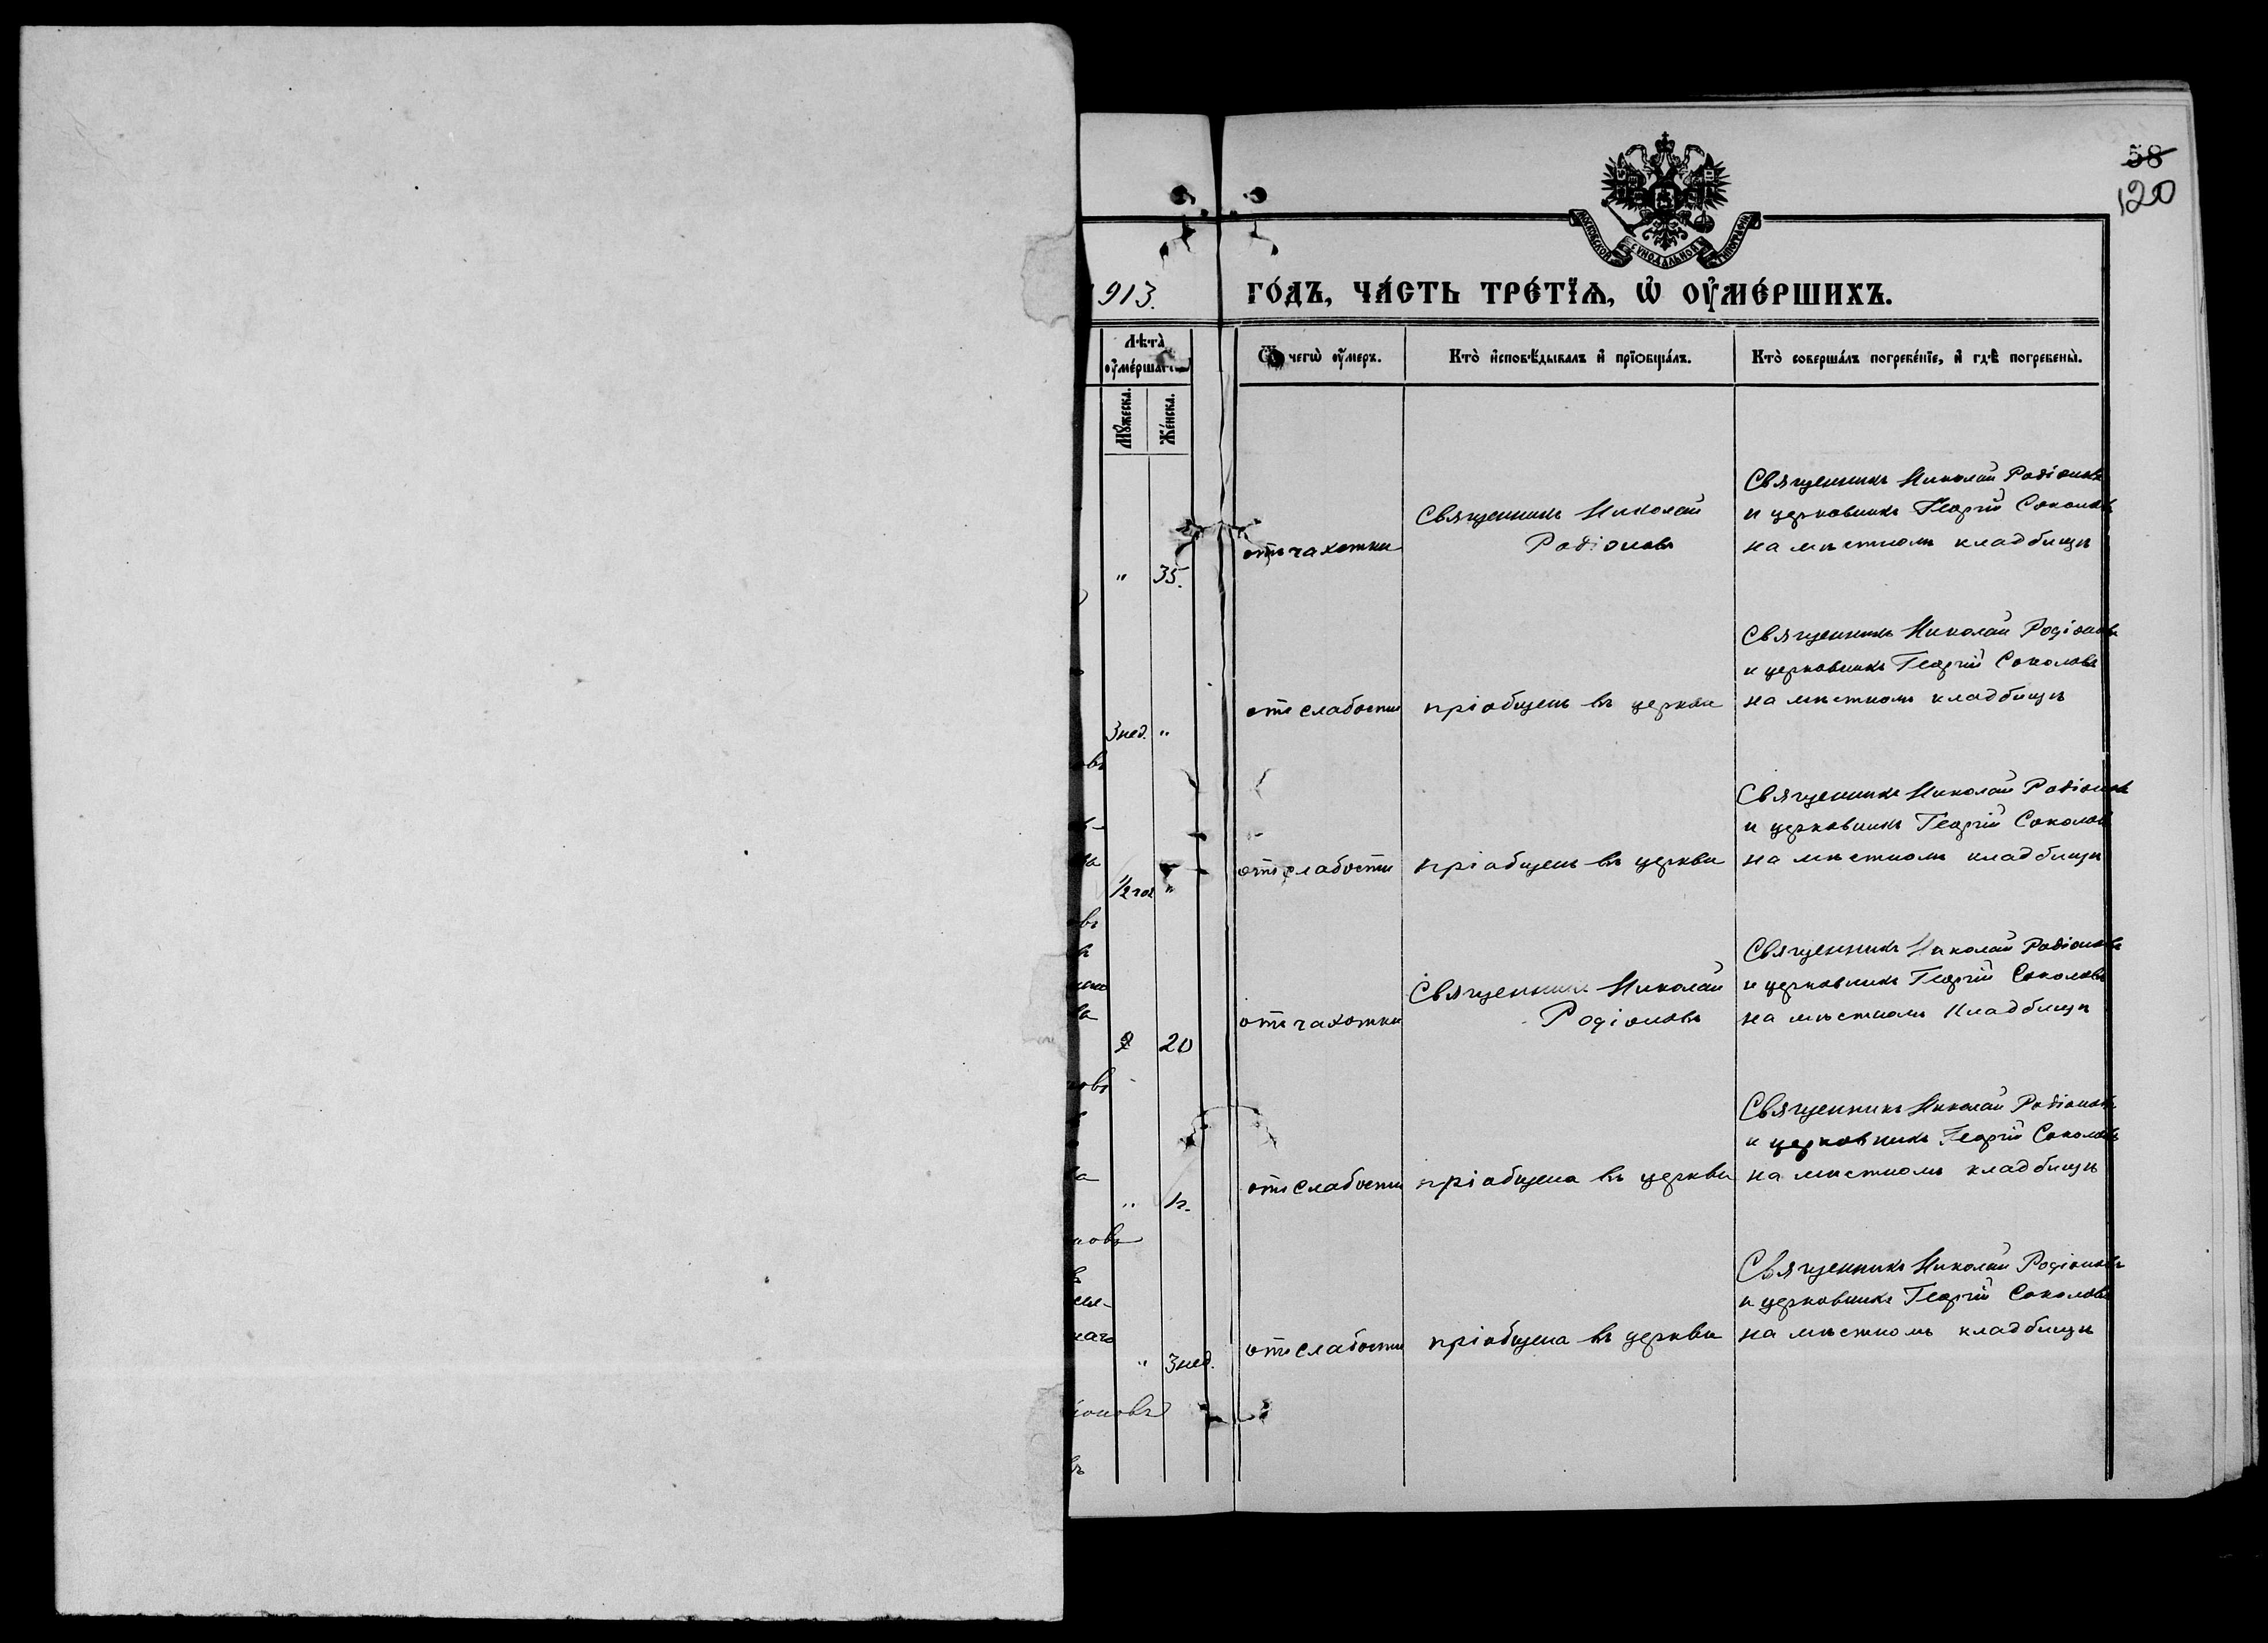 58
120
МОСКОВСКОЙ СѴНОДАЛЬНОЙ ТИПОГРАФІИ
913.
го́дъ, ча́сть тре́тїѧ, ѡ҆ ᲂу҆ме́ршихъ.
Лѣта̀
ᲂу҆ме́ршагѡ
Мꙋ́жеска.
Же́нска.
Ѿ чегѡ̀ ᲂу҆́меръ.
Кто̀ и҆сповѣ́дывалъ и҆ прїѡбща́лъ.
Кто̀ соверша́лъ погребе́нїе, и҆ гдѣ̀ погребены̀.
" 35.
отъ чахотки
Священникъ Николай
Родіоновъ
Священникъ Николай Родіоновъ
и церковникъ Георгій Соколовъ
на мѣстномъ кладбищѣ
3 нед. "
отъ слабости
пріобщенъ въ церкви
Священникъ Николай Родіоновъ
и церковникъ Георгій Соколовъ
на мѣстномъ кладбищѣ
1/2 год "
отъ слабости
пріобщенъ въ церкви
Священникъ Николай Родіоновъ
и церковникъ Георгій Соколовъ
на мѣстномъ кладбищѣ
20
отъ чахотки
Священникъ Николай
Родіоновъ
Священникъ Николай Родіоновъ
и церковникъ Георгій Соколовъ
на мѣстномъ кладбищѣ
"
отъ слабости
пріобщена въ церкви
Священникъ Николай Родіоновъ
и церковникъ Георгій Соколовъ
на мѣстномъ кладбищѣ
" 3 нед.
отъ слабости
пріобщена въ церкви
Священникъ Николай Родіоновъ
и церковникъ Георгій Соколовъ
на мѣстномъ кладбищѣ